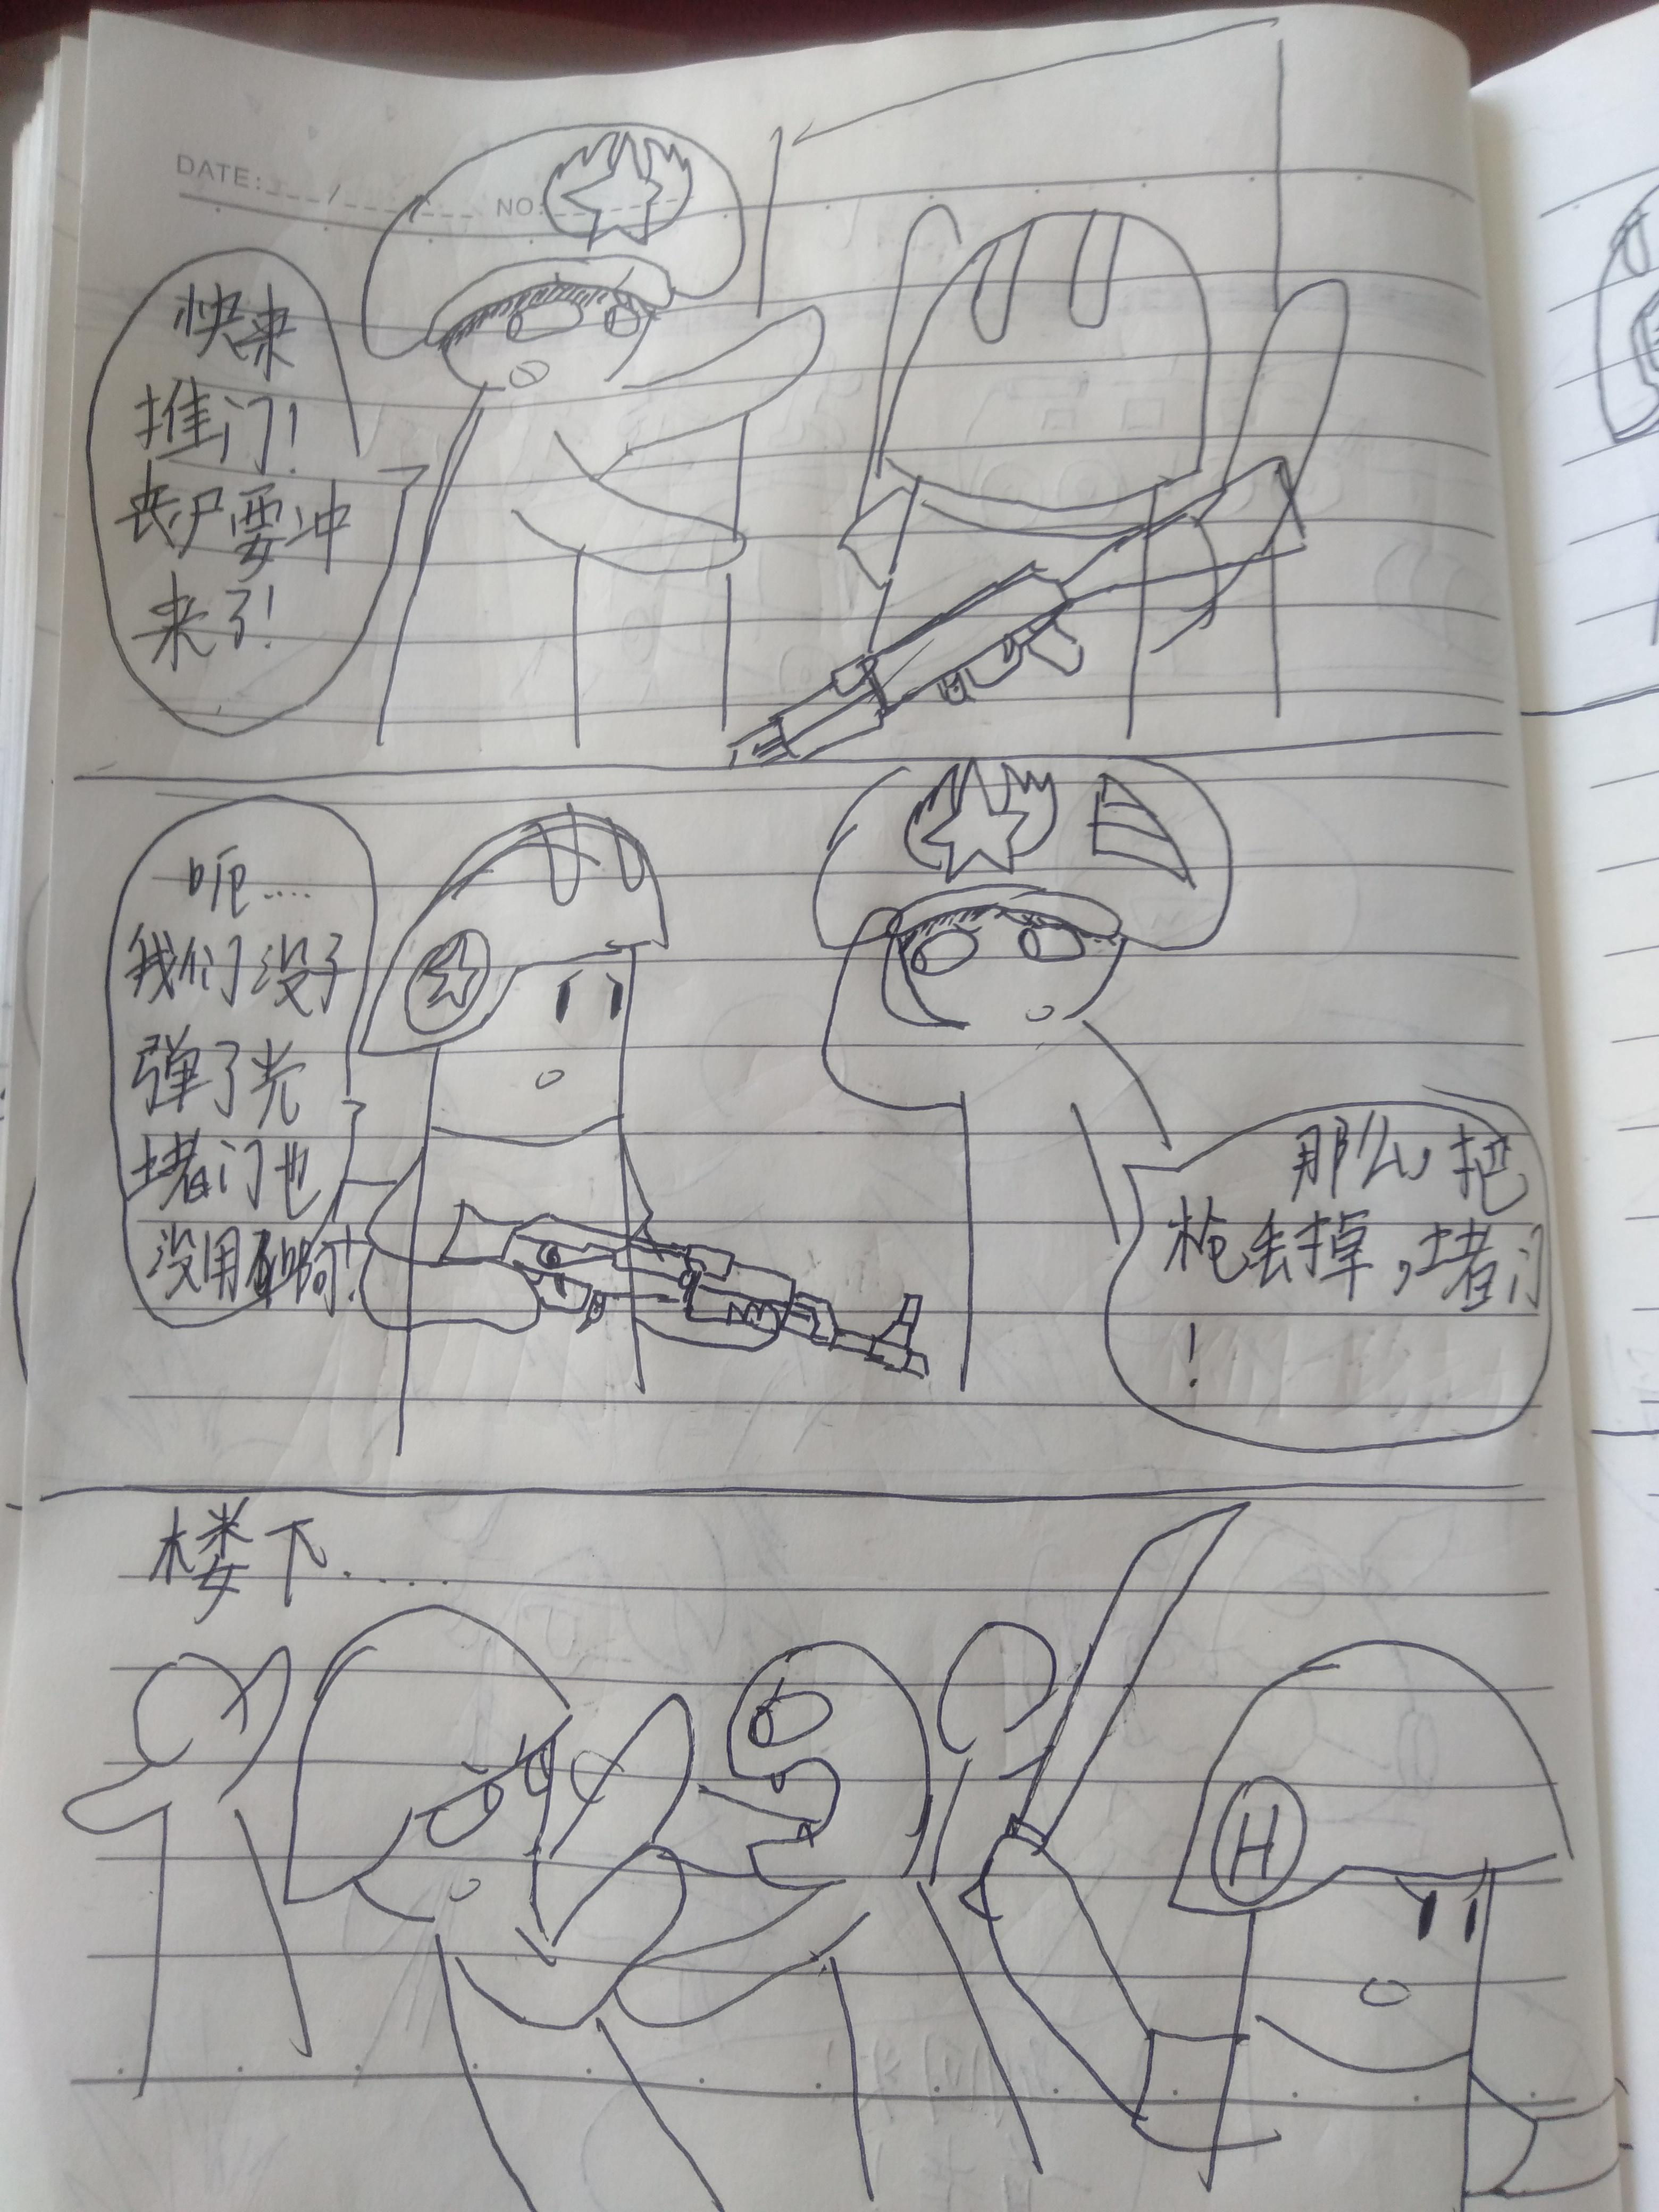 DATE: / NO:
快来
推门!
丧尸要冲
来了!
呃....
我们没子
弹了光
堵门也
没用啊!
那么,把
枪丢掉,堵门
!
楼下.....
H